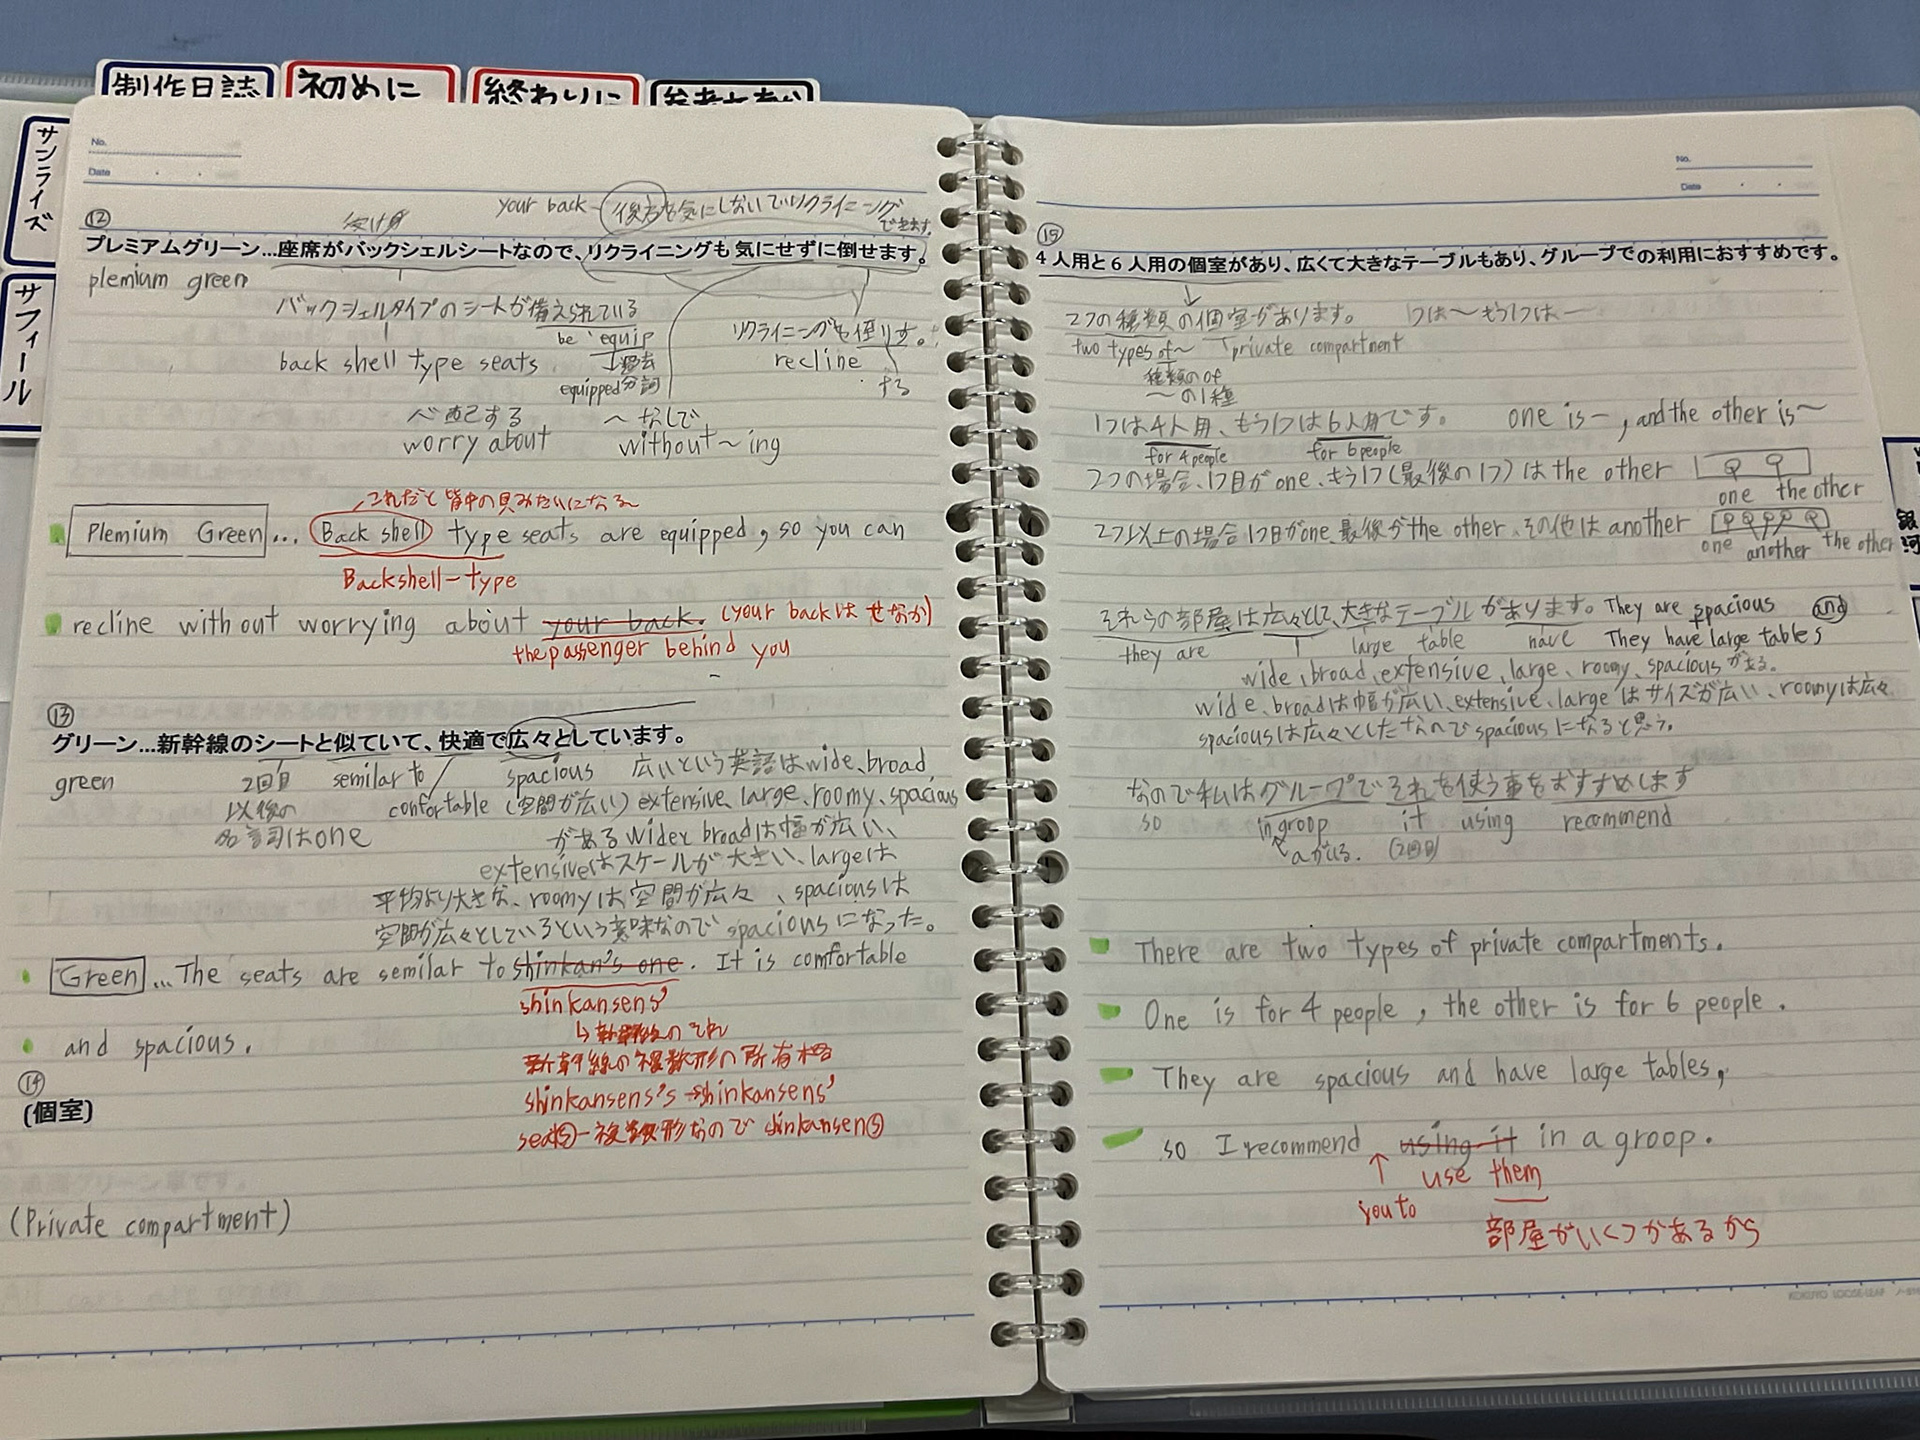 制作日誌
初めに
終わりに
サンライズ
サフィール
No.
Date
your back 後方を気にしないでリクライニング
できます。
⑫
受け身
プレミアムグリーン…座席がバックシェルシートなので、リクライニングも気にせずに倒せます。
plemium green
バックシェルタイプのシートが備えられている
be equip
リクライニングも倒します。
back shell type seats
↓過去
recline
equipped分詞
する
心配する ～なしで
worry about without～ing
これだと背中の貝みたいになる
Plemium Green… Back shell type seats are equipped, so you can
Backshell-type
recline without worrying about your back. (your backは せなか)
the passenger behind you
⑬
グリーン…新幹線のシートと似ていて、快適で広々としています。
green 2回目 semilar to spacious 広いという英語はwide、broad、
以後の confortable (空間が広い) extensive、large、roomy、spacious
名詞はone がある wideとbroadは幅が広い、
extensiveはスケールが大きい、largeは
平均より大きな、roomyは空間が広々、spaciousは
空間が広々としているという意味なので spaciousになった。
Green …The seats are semilar to shinkan's one. It is comfortable
shinkansens'
↳新幹線のそれ
and spacious.
新幹線の複数形の所有格
⑭
(個室)
shinkansens's→shinkansens'
seatⓢ－複数形なので shinkansenⓢ
(Private compartment)
No.
Date
⑮
4人用と6人用の個室があり、広くて大きなテーブルもあり、グループでの利用におすすめです。
↓
2つの種類の個室があります。 1つは～もう1つは～
two types of～ private compartment
種類のof
～の1種
1つは4人用、もう1つは6人用です。 one is～, and the other is～
for 4people for 6people
2つの場合、1つ目がone、もう1つ(最後の1つ)はthe other
one the other
2つ以上の場合1つ目がone、最後がthe other、その他はanother
one another the other
それらの部屋は広々として、大きなテーブルがあります。They are spacious and
they are large table have They have large tables
wide、broad、extensive、large、roomy、spaciousがある。
wide、broadは幅が広い、extensive、largeはサイズが広い、roomyは広々
spaciousは広々としたなのでspaciousになると思う。
なので私はグループでそれを使う事をおすすめします
so in groop it using recommend
aがいる。 (2回目)
There are two types of private compartments.
One is for 4 people, the other is for 6 people.
They are spacious and have large tables,
so I recommend using it in a groop.
↑ use them
you to
部屋がいくつかあるから
KOKUYO LOOSE-LEAF
銀河